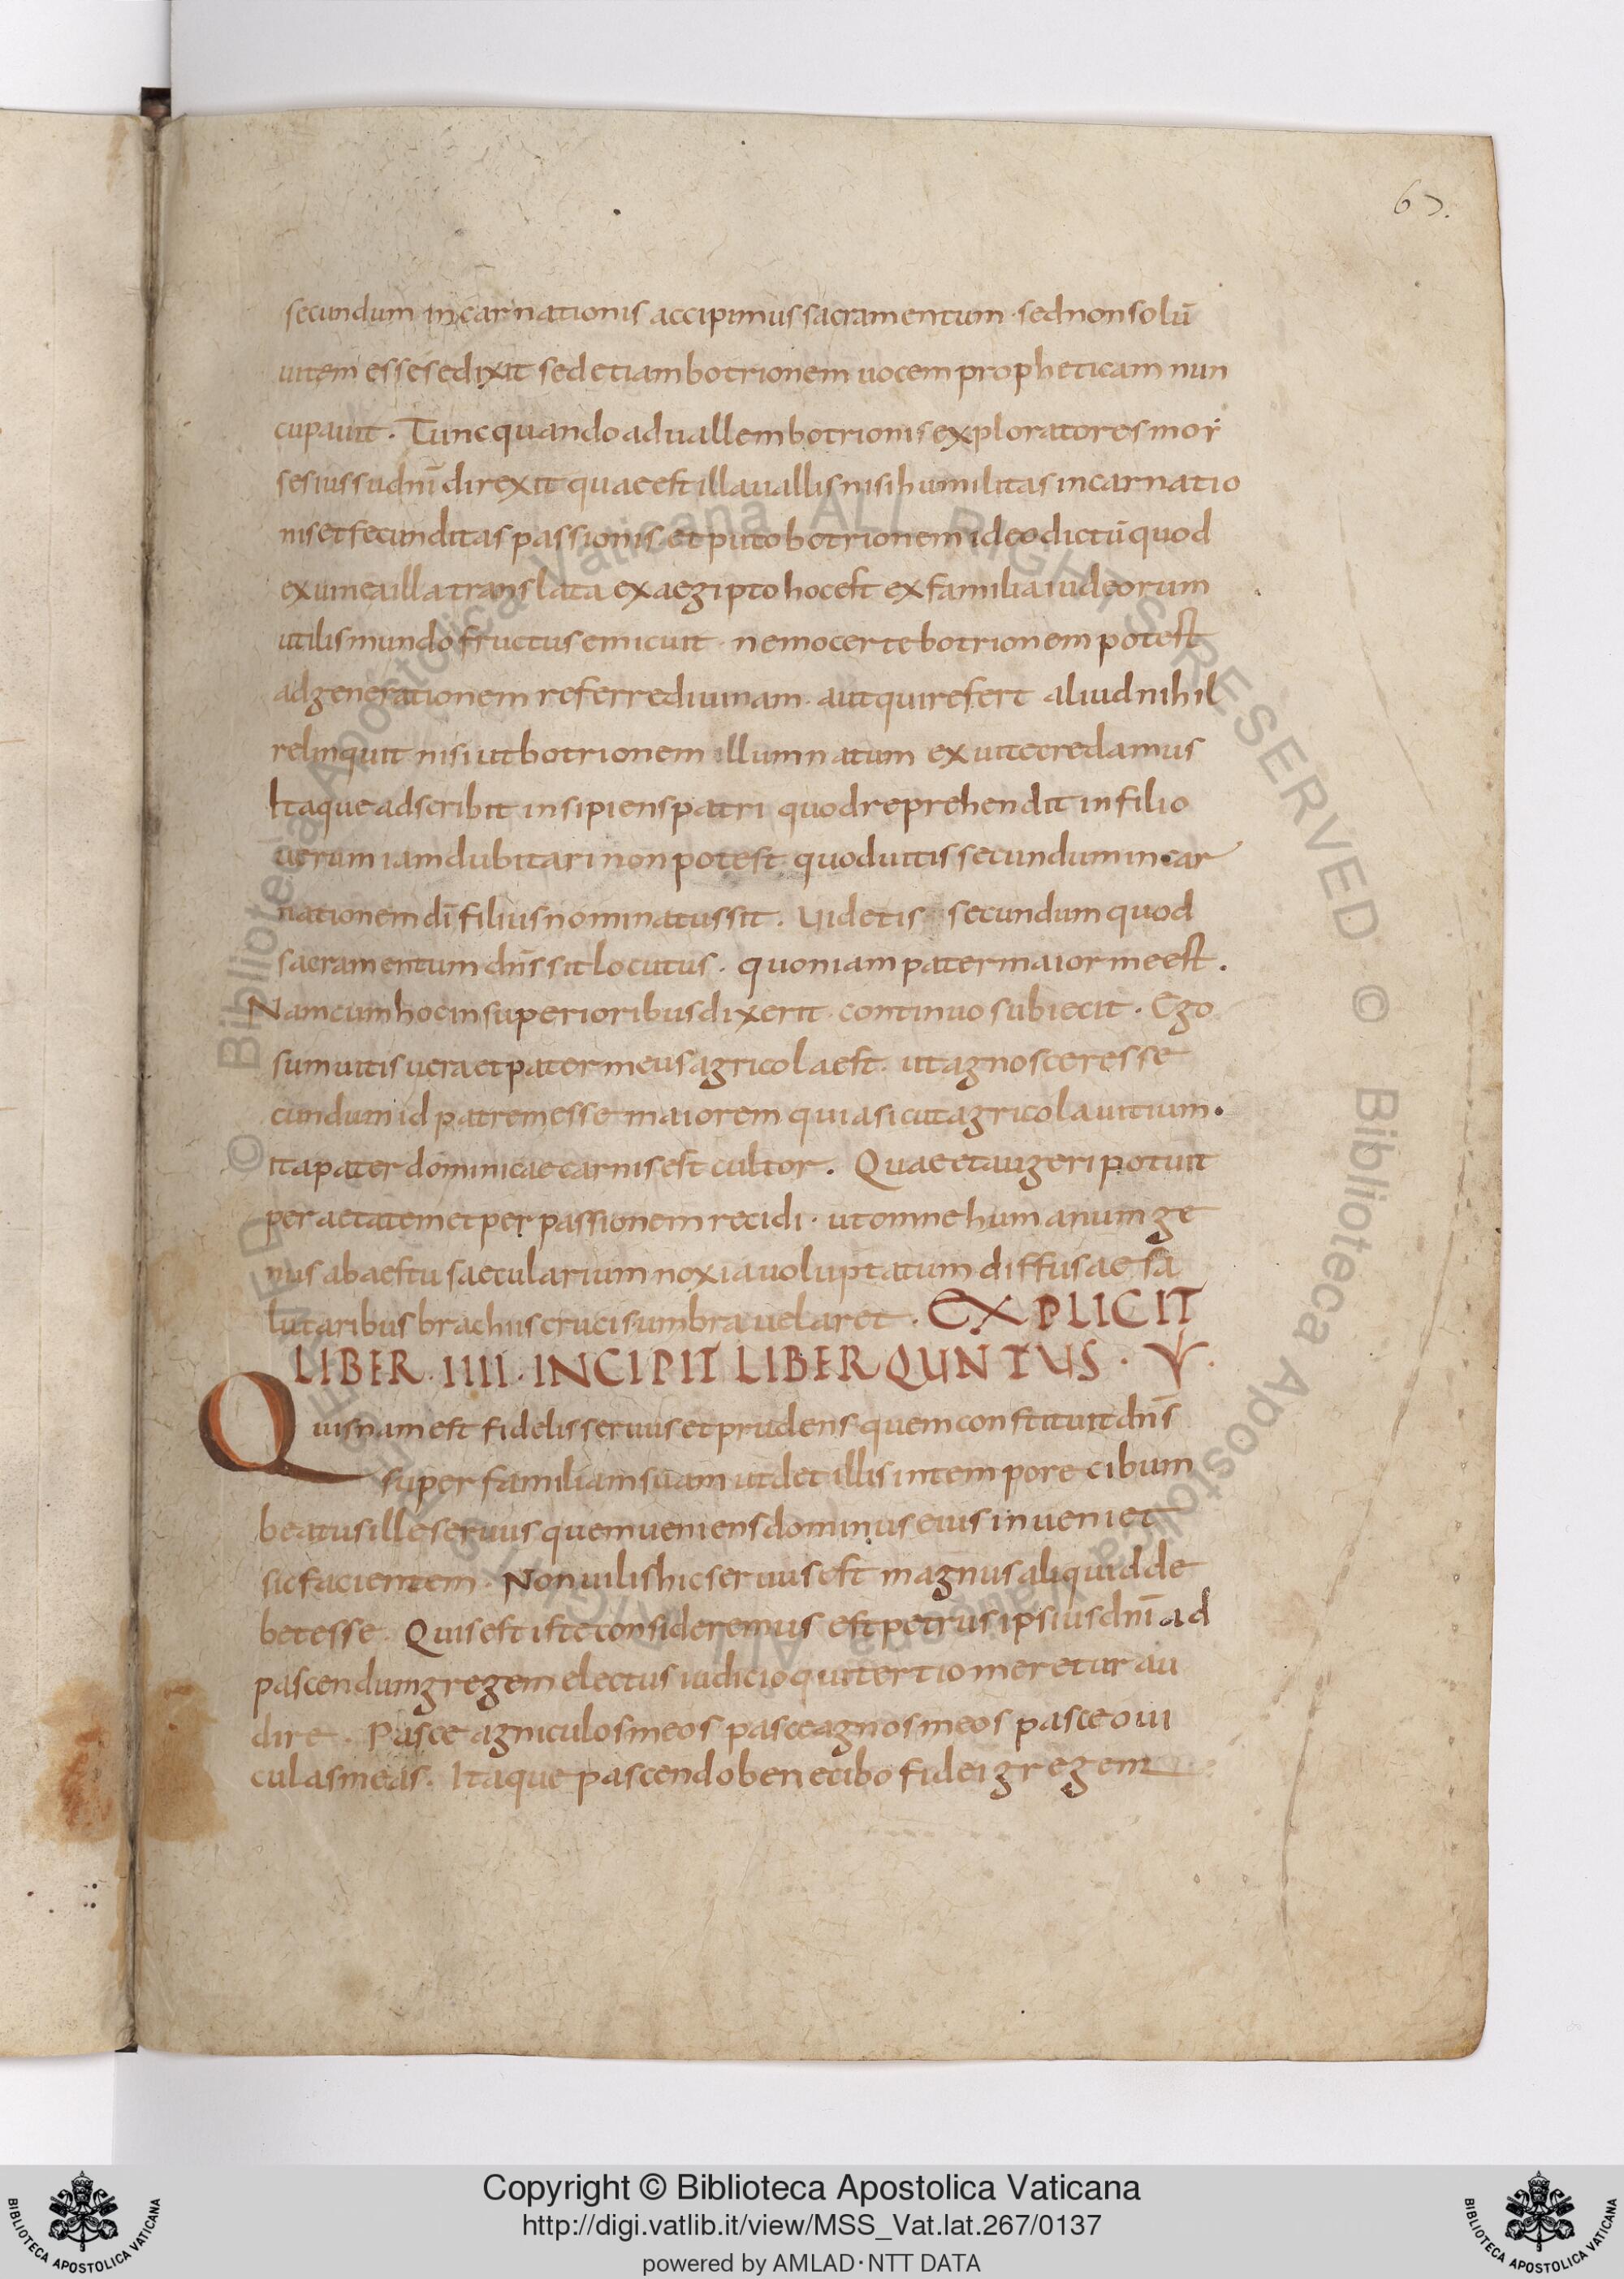 67.
secundum incarnationis accipimus sacramentum · sed non solū
uitem esse se dixit sed etiam botrionem uocem propheticam nun
cupauit · Tunc quando ad uallem botrionis exploratores moy
ses iussu dn̄i direxit quae est illa uallis nisi humilitas incarnatio
nis et fecunditas passionis · et puto botrionem ideo dictū quod
ex uinea illa translata ex aegipto hoc est ex familia iudeorum
utilis mundo fructus emicuit · nemo certe botrionem potest
ad generationem referre diuinam · aut qui refert aliud nihil
relinquit nisi ut botrionem illum natum ex uite credamus
Itaque adscribit insipiens patri quod reprehendit in filio
uerum iam dubitari non potest quod uitis secundum incar
nationem dī filius nominatus sit · Uidetis secundum quod
sacramentum dn̄s sit locutus · quoniam pater maior me est .
Nam cum hoc in superioribus dixerit · continuo subiecit · Ego
sum uitis uera et pater meus agricola est · ut agnosceres se
cundum id patrem esse maiorem quia sicut agricola uitium ·
ita pater dominicae carnis est cultor . Quae et augeri potuit
per aetatem et per passionem recidi · ut omne humanum ge
nus ab aestu saecularium noxia uoluptatum diffusae sa
lutaribus brachiis crucis umbra uelaret · EXPLICIT
LIBER · IIII · INCIPIT LIBER QUNTUS · V ·
Quisnam est fidelis seruus et prudens quem constituit dn̄s
super familiam suam ut det illis in tempore cibum
beatus ille seruus quem ueniens dominus eius inueniet
sic facientem · Non uilis hic seruus est magnus aliquid de
bet esse · Quis est iste consideremus est petrus ipsius dn̄i ad
pascendum gregem electus iudicio qui tertio meretur au
dire · Pasce agniculos meos pasce agnos meos pasce oui
culas meas · Itaque pascendo bene cibo fidei gregem
Copyright © Biblioteca Apostolica Vaticana
http://digi.vatlib.it/view/MSS_Vat.lat.267/0137
powered by AMLAD · NTT DATA
BIBLIOTECA APOSTOLICA VATICANA
BIBLIOTECA APOSTOLICA VATICANA